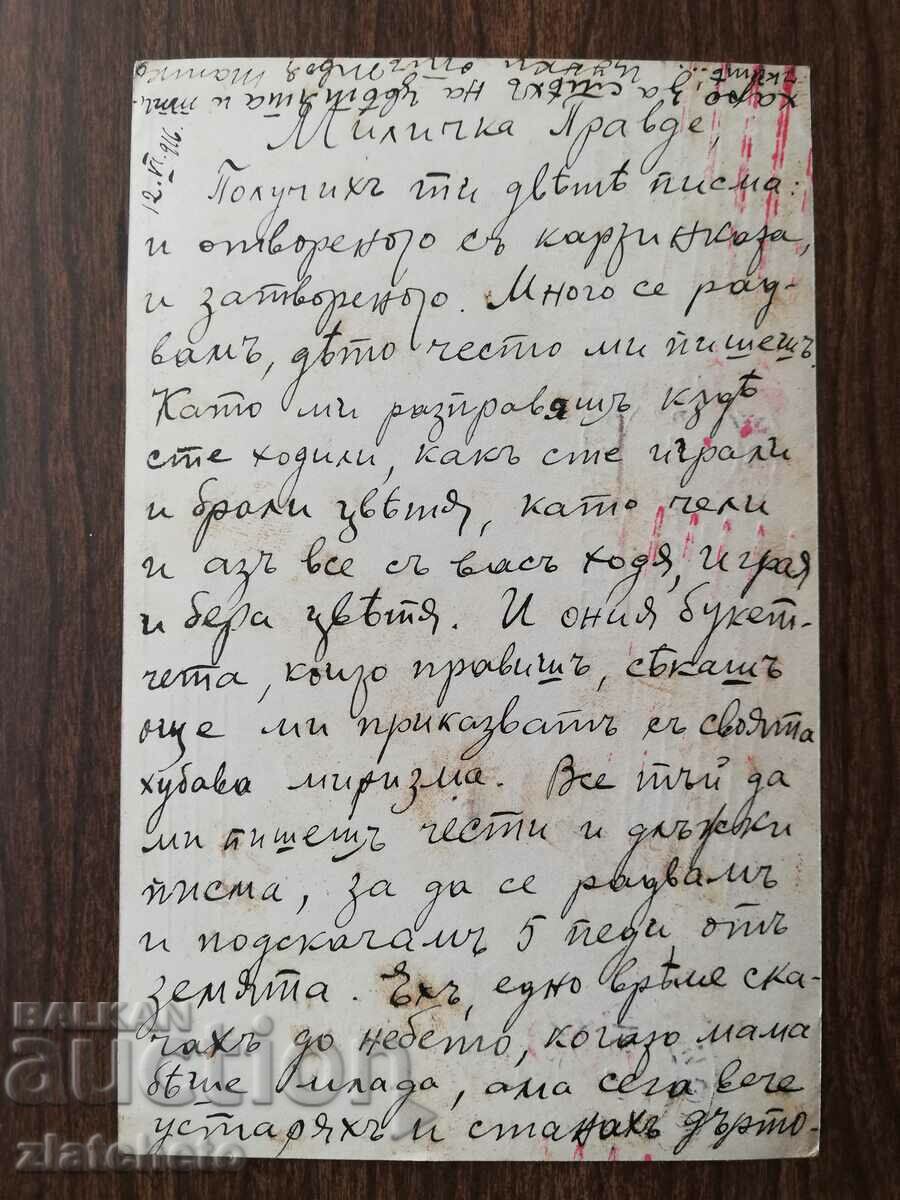 12.VI.916.
Миличка Правде,
Получихъ ти двѣтѣ писма:
и отвореното съ карзинката,
и затвореното. Много се рад-
вамъ, дѣто често ми пишешъ.
Като ми разправяшъ кждѣ
сте ходили, какъ сте играли
и брали цвѣтя, като чели
и азъ все съ васъ ходя, играя
и бера цвѣтя. И ония букет-
чета, които правишъ, сѣкашъ
още ми приказватъ съ своята
хубава миризма. Все тъй да
ми пишешъ чести и длъжки
писма, за да се радвамъ
и подскачамъ 5 педи отъ
земята. Ехъ, едно врѣме ска-
чахъ до небето, когато мама
бѣше млада, ама сега вече
устаряхъ и станахъ дърто-
за смѣхъ на цвѣтята и
BALKAN
auction
zlatcheto